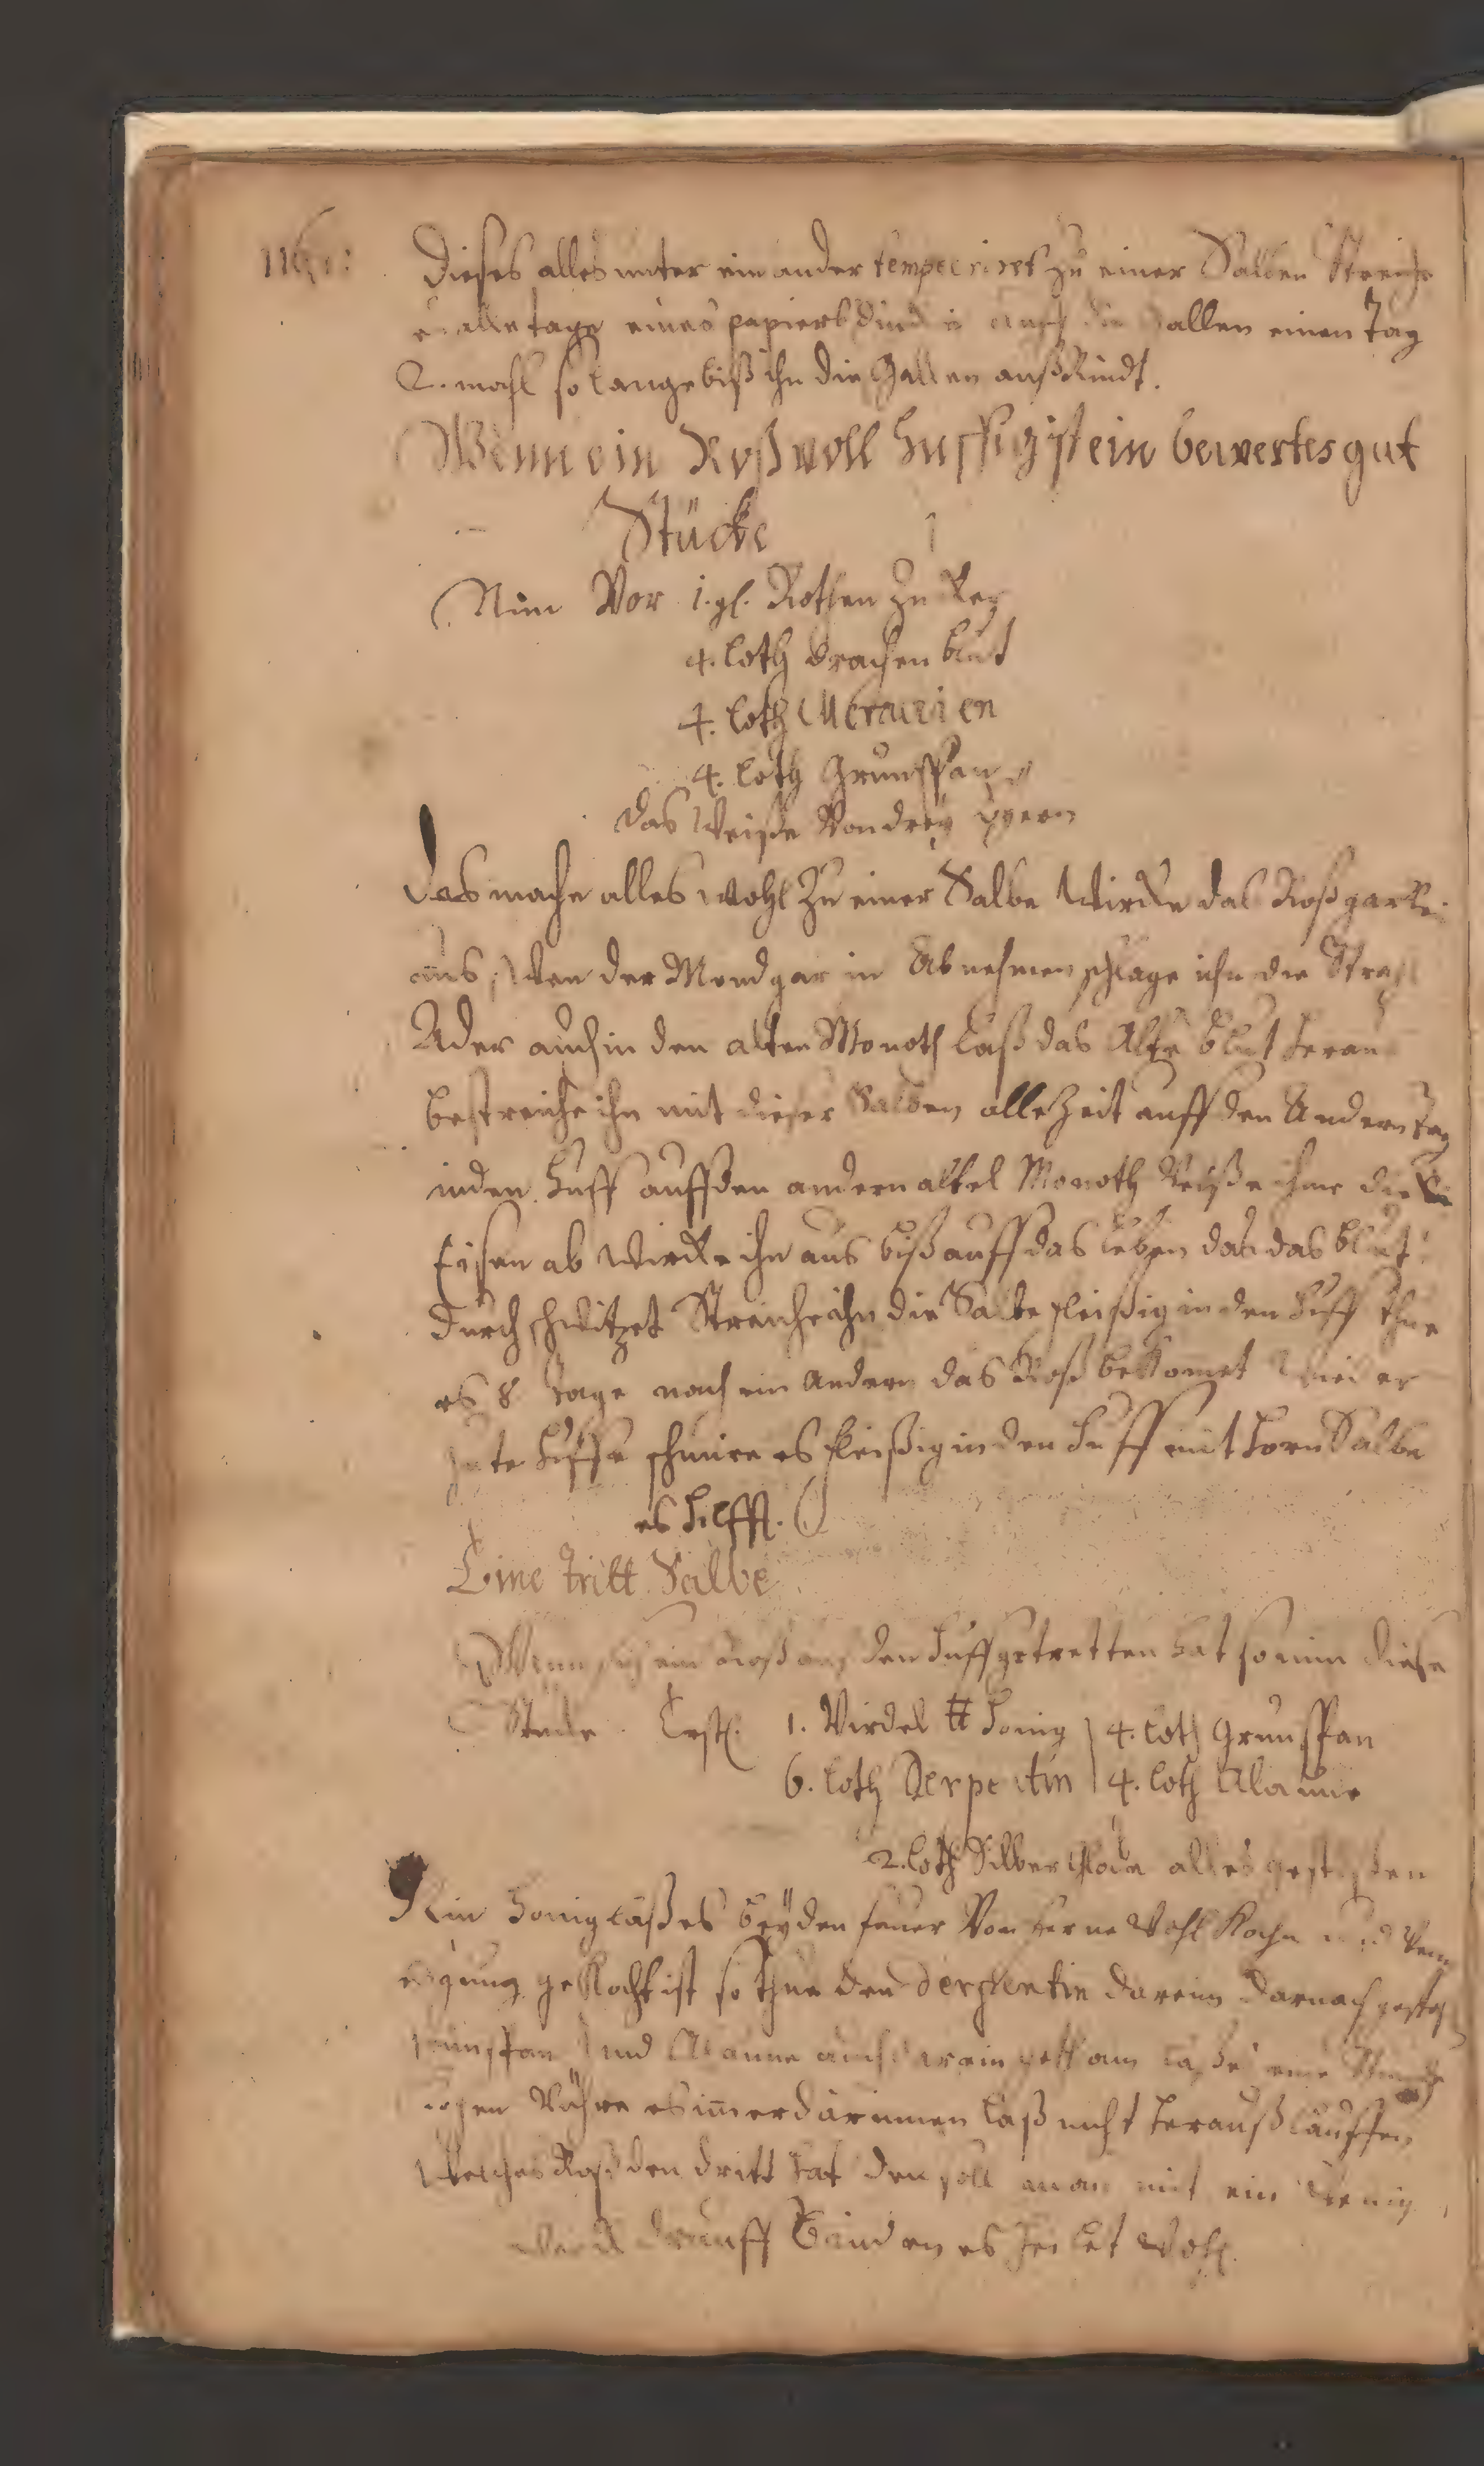 Dieses alles unter ein ander temperiret zu einer Salben Streiche
alle tage eines papiers auff die Gallen einen Tag
2. mahl so lange biß ihn die Gallen auß Rindt.
Wenn ein Roß voll huffig ist ein bewertes gut
Stücke
Nim Vor 1. gl. Rothen Zucker
4. loth drachen blut
4. loth Mercurien
4. loth Grunspan
das Weisse Von drey eyern
das mache alles wohl zu einer Salbe Wircke das Roß gar
aus, Wen der Mond gar in Abnehmen schlage ihn die Strahl
Ader auch in den alten Monoth laß das Alte blut heraus
bestreiche ihn mit dieser Salben alle Zeit auff den Andern tag
in den huff auff den andern altel Monoth Reisse ihme die
Eisen ab Wircke ihn aus biß auff das leben das das blut
durch schwitzet Streiche ihn die Salbe fleissig in den huff thue
es 8 tage nach ein andern das Roß bekomet Wieder
gute huffe schmire es fleissig in den huff mit horn Salbe
es hilfft.
Eine tritt Salbe
Wenn sich ein Roß auf den huff getretten hat so nim diese
Stucke. Erstl. 1. Virdel ℔ honig 4. loth Grunspan
6. loth Derpentin 4. loth Alaune
2. loth Silber Gläte alles gestossen
Nim honig laß es bey den feuer Von ferne Wohl Kochen und Wenn
es gnung geKocht ist so thue den derpentin darein darnach
Grunspan und Alaune auch darein laß es eine Stunde
Kochen Rühre es immer darinnen laß nicht herauß lauffen
Welches Roß den dritt hat den soll man mit ein Wenig
Werck drauff binden es heilet Wohl.